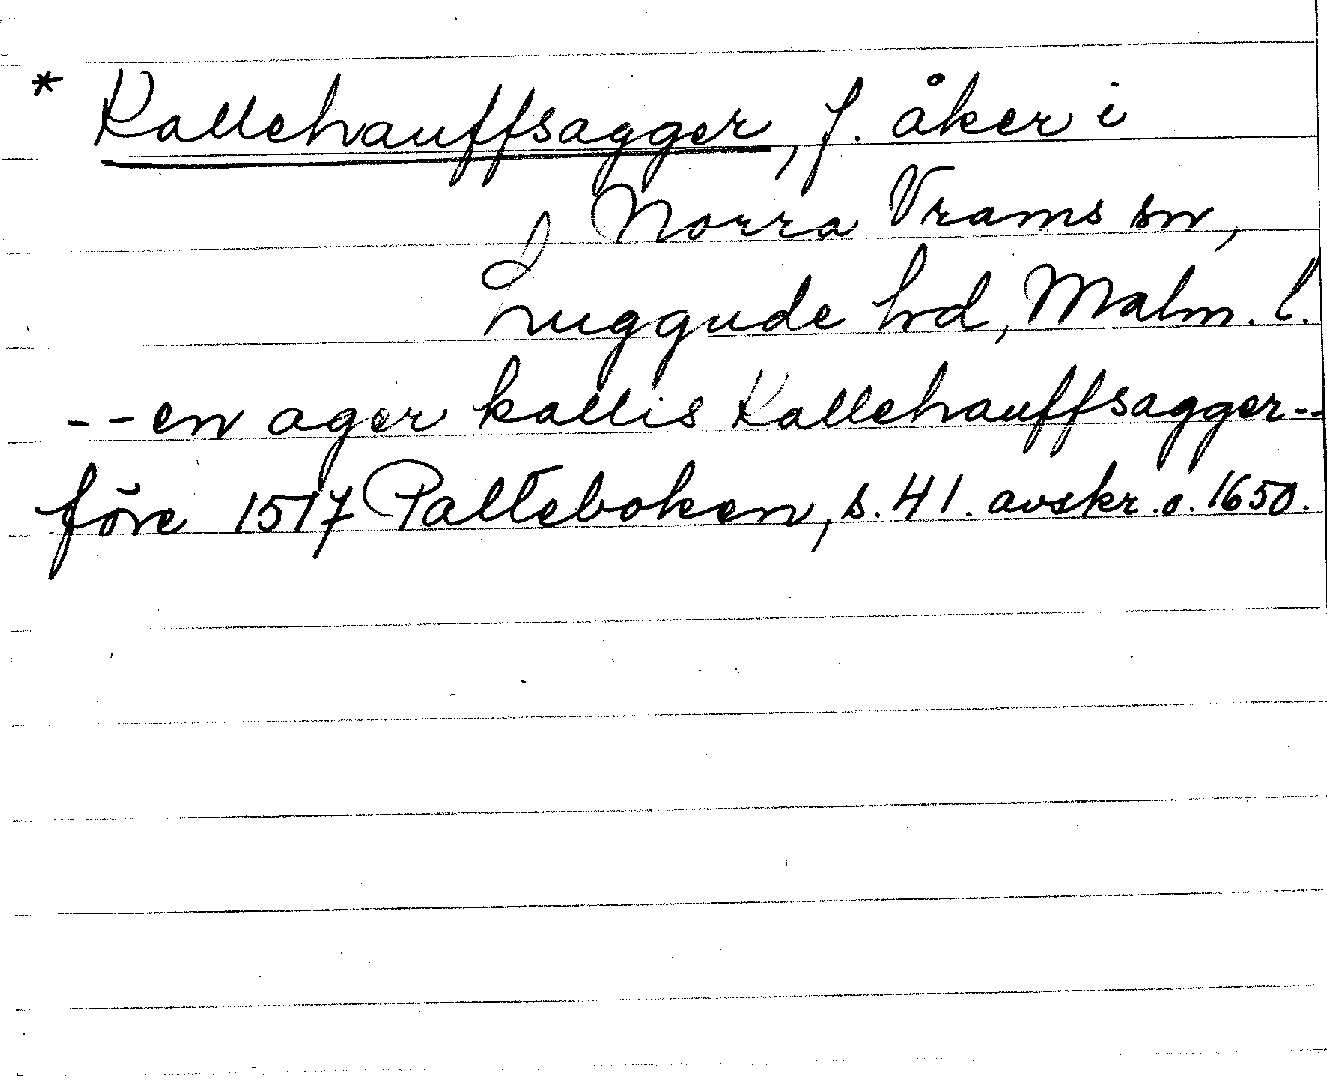 * Kallehauffsagger, f. åker i
Norra Vrams sn,
Luggude hd, Malm. l.
-- en ager kallis Kallehauffsagger --
före 1517 Palteboken, s. 41. avskr. o. 1650.